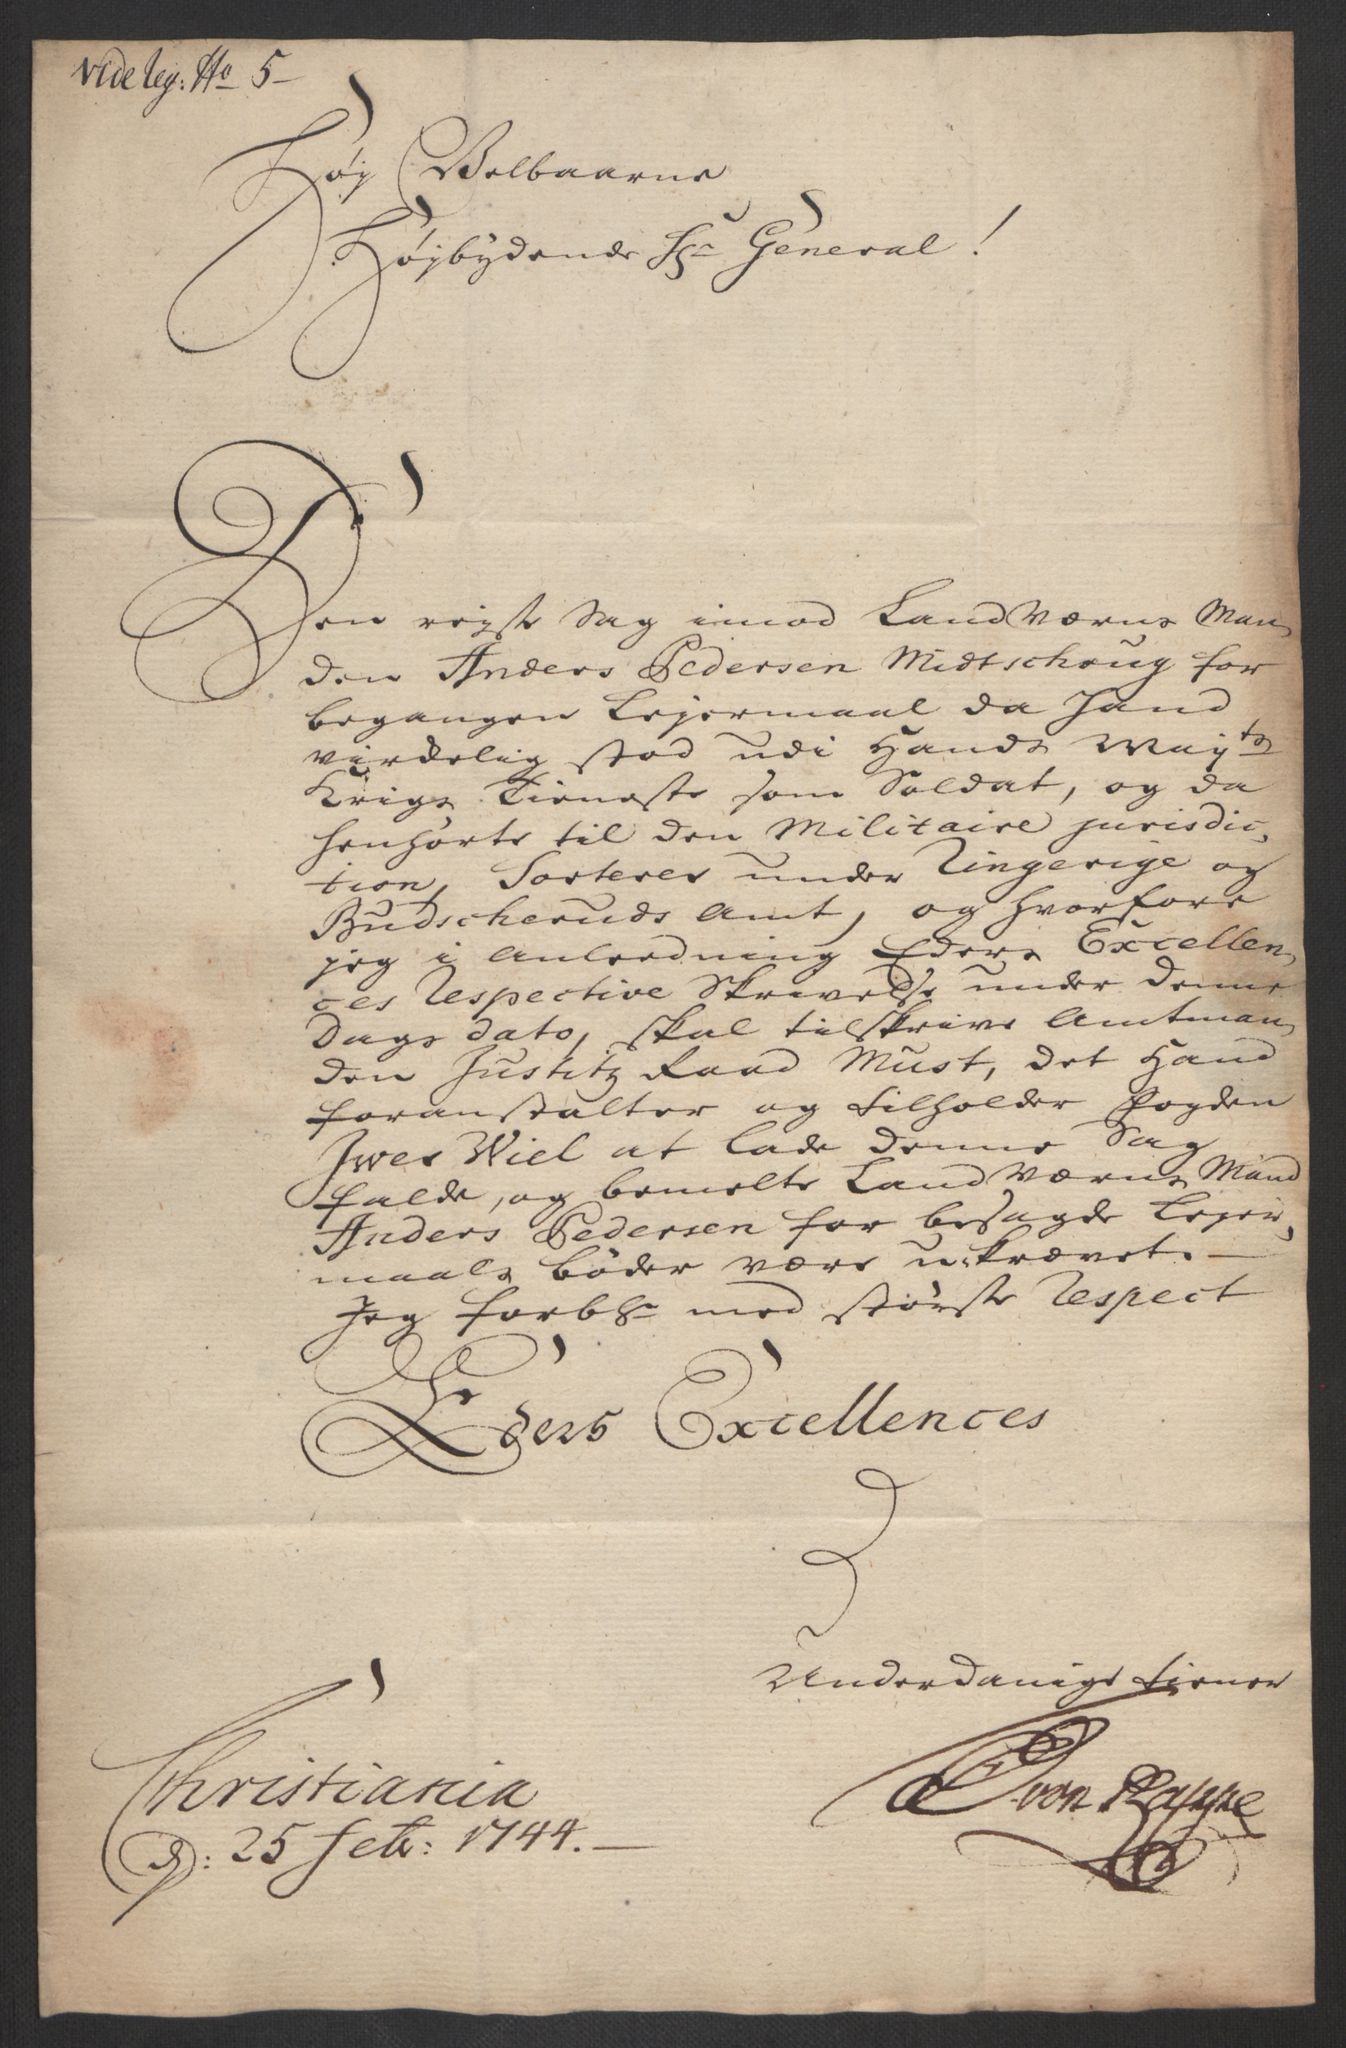 vide Reg: No 5
Høy Velbaarne
Høybydende Hr General!
Den reyste Sag imod Land Værns Man,
den Anders Pedersen Midtschoug for
begangen Lejermaal da hand
virkelig stod udi Hands Mayts
Krigs Tieneste som Soldat, og da
henhørte til den Militaire jurisdic,
tion, Sorterer under Ringerige og
Budscheruds Amt, og hvorfore
jeg i Anledning Eders Excellen,
ces Respective Skrivelse under denne
Dags dato, skal tilskrive Amtman,
den Justitz Raad Must, det Hand
foranstalter og tilholder Fogden
Iwer Wiel at lade denne Sag
falde, og bemelte Land Værns Mand
Anders Pedersen for besagde Lejer,
maals bøder være u-krævet. —
Jeg forblr med største Respect
Eders Excellences
Underdanige tiener
von Rappe
Christiania
d: 25 Febr: 1744. —